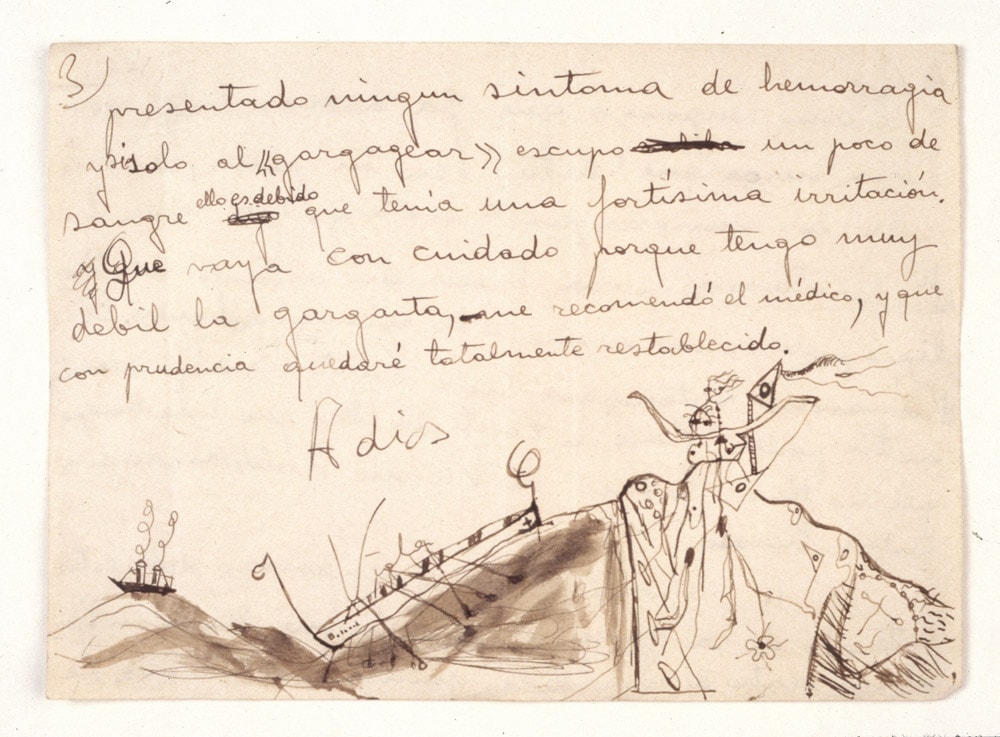 3)
presentado ningun sintoma de hemorragia
y si solo al «gargagear» escupo un poco de
sangre ello es debido que tenía una fortísima irritación.
y Que vaya con cuidado porque tengo muy
débil la garganta, me recomendó el médico, y que
con prudencia quedaré totalmente restablecido.
Adios